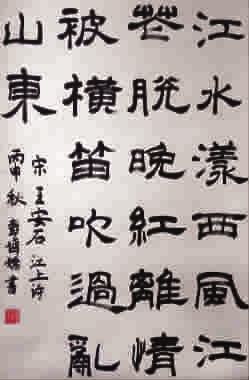 江水漾西風江
花脫晚紅離情
被橫笛吹過亂
山東
宋王安石江上诗
丙申秋書